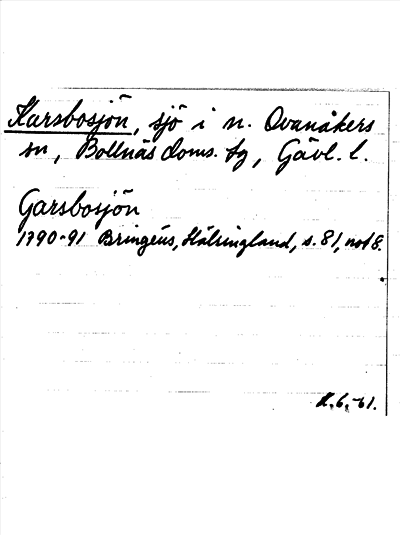 Karsbosjön, sjö i n. Ovanåkers
sn, Bollnäs doms. tg, Gävl. l.
Garsbosjön
1790-91 Bringéus, Hälsingland, s. 81, not 8.
K. 6. -61.